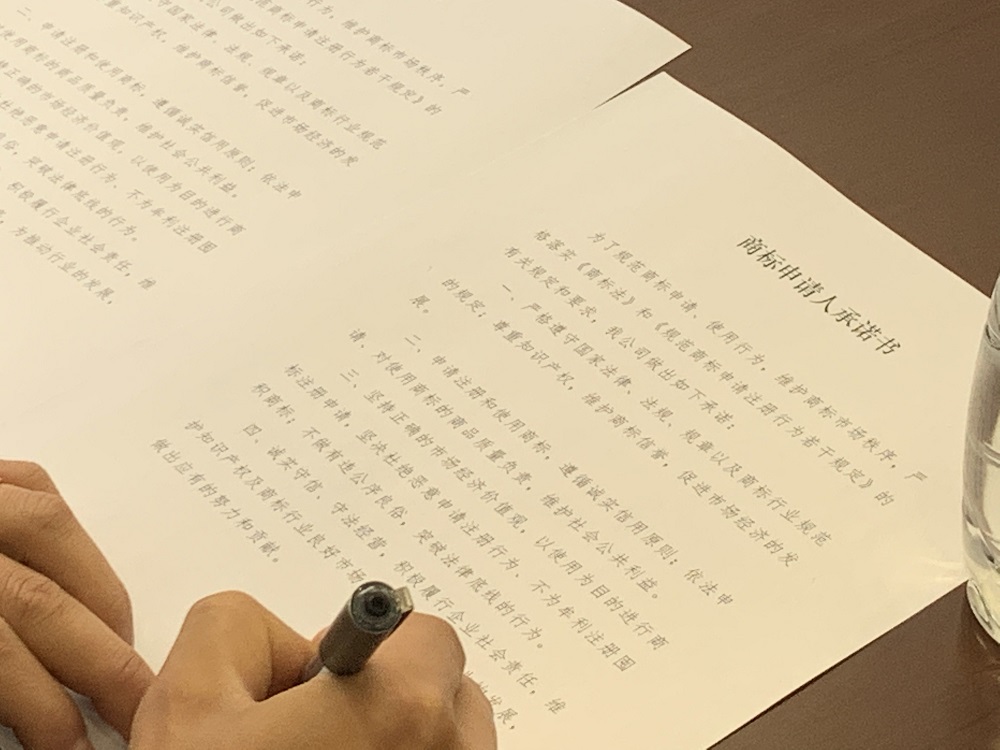 行为，维护商标市场秩序，严
范商标申请注册行为若干规定》的
公司做出如下承诺：
守国家法律、法规、规章以及商标行业规范
重知识产权，维护商标信誉，促进市场经济的发
二、申请注册和使用商标，遵循诚实信用原则；依法申
使用商标的商品质量负责，维护社会公共利益。
持正确的市场经济价值观，以使用为目的进行商
杜绝恶意申请注册行为、不为牟利注册囤
突破法律底线的行为。
积极履行企业社会责任，维
为推动行业的发展，
商标申请人承诺书
为了规范商标申请、使用行为，维护商标市场秩序，严
格落实《商标法》和《规范商标申请注册行为若干规定》的
有关规定和要求，我公司做出如下承诺：
一、严格遵守国家法律、法规、规章以及商标行业规范
的规定；尊重知识产权，维护商标信誉，促进市场经济的发
展。
二、申请注册和使用商标，遵循诚实信用原则；依法申
请、对使用商标的商品质量负责，维护社会公共利益。
三、坚持正确的市场经济价值观，以使用为目的进行商
标注册申请，坚决杜绝恶意申请注册行为、不为牟利注册囤
积商标；不做有违公序良俗，突破法律底线的行为。
四、诚实守信、守法经营，积极履行企业社会责任，维
护知识产权及商标行业良好市场 的发展，
做出应有的努力和贡献。